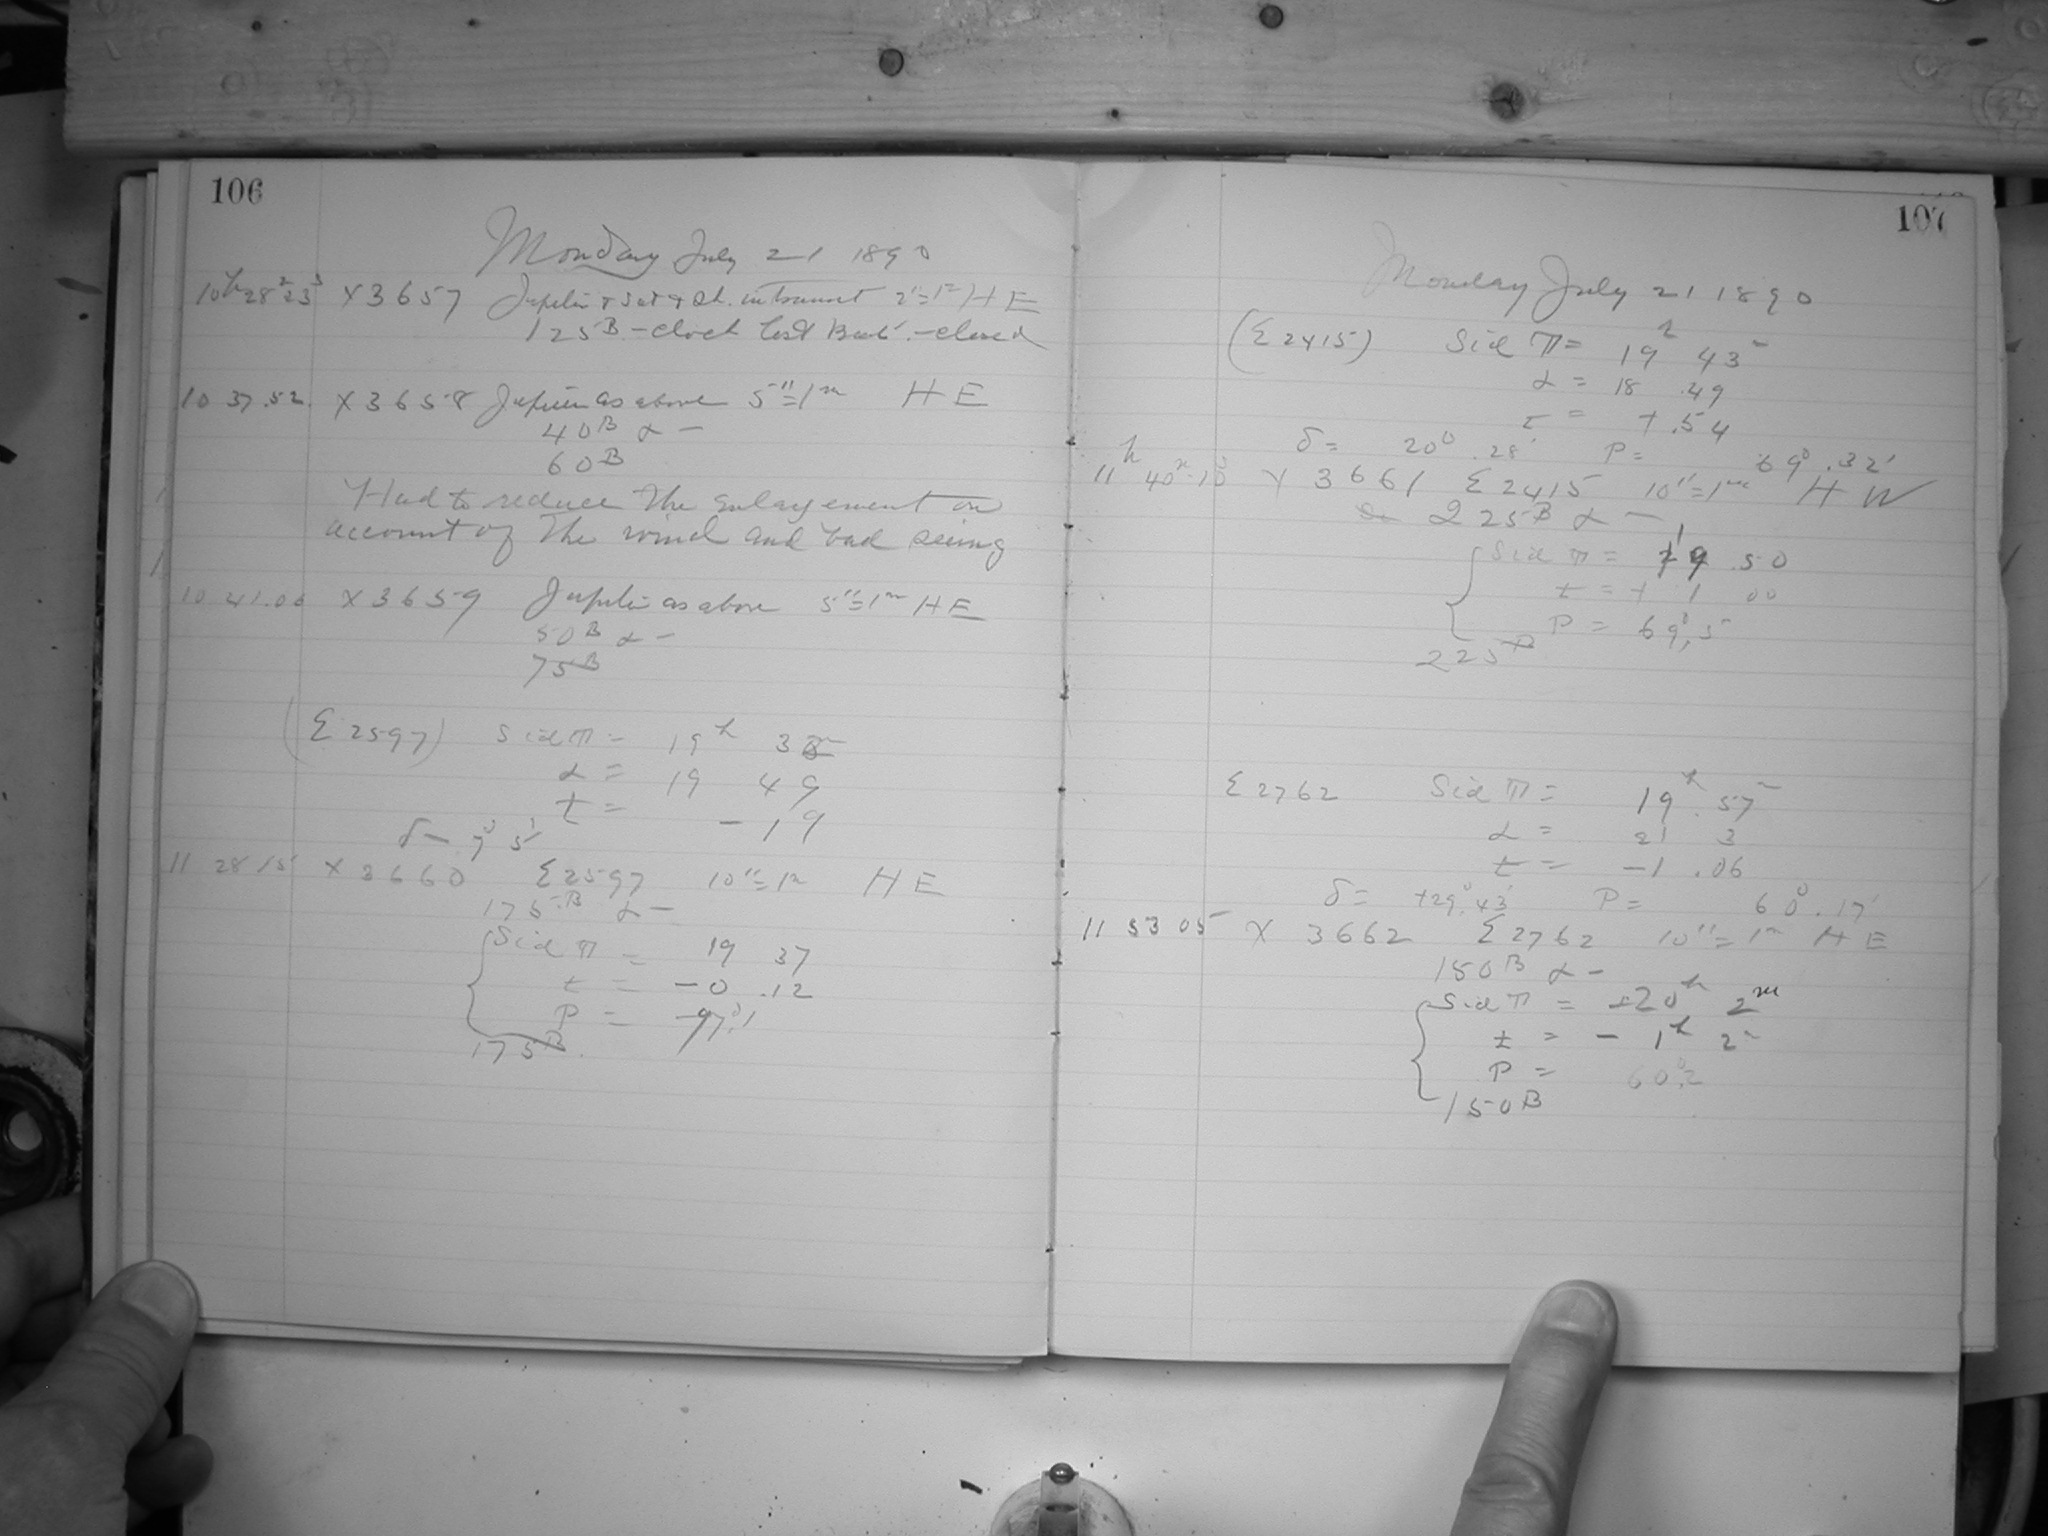 106
Monday July 21 1890
10h 28m 23s X3657 Jupiter & Sat & Sh. in transit 2"=1m HE
125B - clock lost Beat. - closed
10 37.52. X3658 Jupiter as above 5"=1m HE
40B α -
60B
Had to reduce the enlargement on
account of the wind and bad seeing
10 41.06 X3659 Jupiter as above 5"=1m HE
50B α -
75B
(Σ 2597) Sid T = 19h 38m
α = 19 49
t = - 19
δ - 7° 5'
11 28 15 X3660 Σ2597 10"=1m HE
175B α -
Sid T = 19 37
t = -0 .12
P = 97°,1
175B.
107
Monday July 21 1890
(Σ2415) Sid T = 19h 43m
α = 18 .49
t = + .54
δ = 20° .28' P = 69° .32'
11h 40m 10s X 3661 Σ2415 10"=1m HW
225B α -
Sid T = 19 .50
t = + 1 00
P = 69°,5
225B
Σ2762 Sid T = 19h .57m
α = 21 3
t = -1 .06
δ = +29°.43' P = 60° .17'
11 53 05 X 3662 Σ2762 10"=1m HE
150B α -
Sid T = 20h 2m
t = - 1h 2m
P = 60°,2
150B